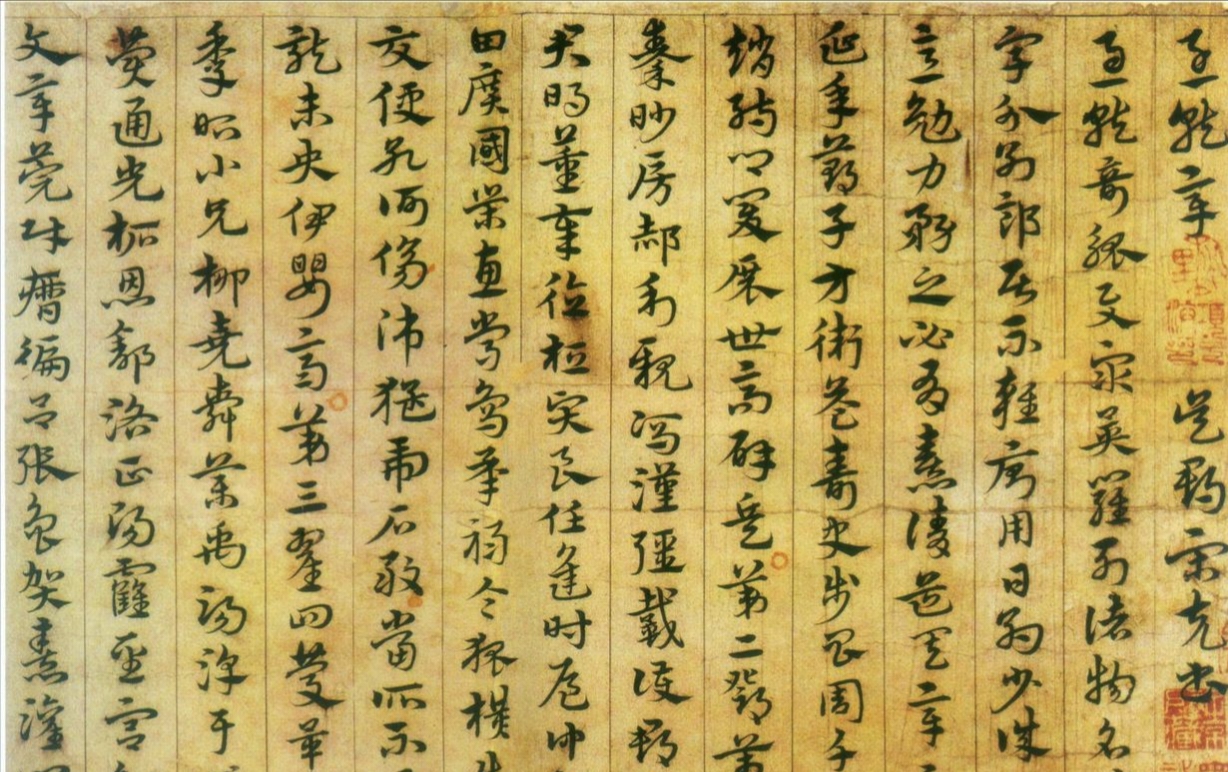 急就章 吳郡宋克書
急就奇觚與衆異羅列諸物名
字分別部居不雜廁用日約少誠
意勉力務之必有憙請道其章
延年鄭子方衛益壽史步昌周千
趙孺卿爰展世高辟兵第二鄧萬
秦眇房郝利親馮漢彊戴護郡
景君明董奉德桓賢良任逢時侯仲
田廣國榮惠常烏承祿令狐橫朱
交便孔何傷師猛虎石敢當所不
龍未央伊嬰齊第三翟回慶畢
季昭小兄柳堯舜藥禹湯淳于
費通光柘恩舒路正陽霍聖宮
文章莞財歷偏呂張魯賀憙灌